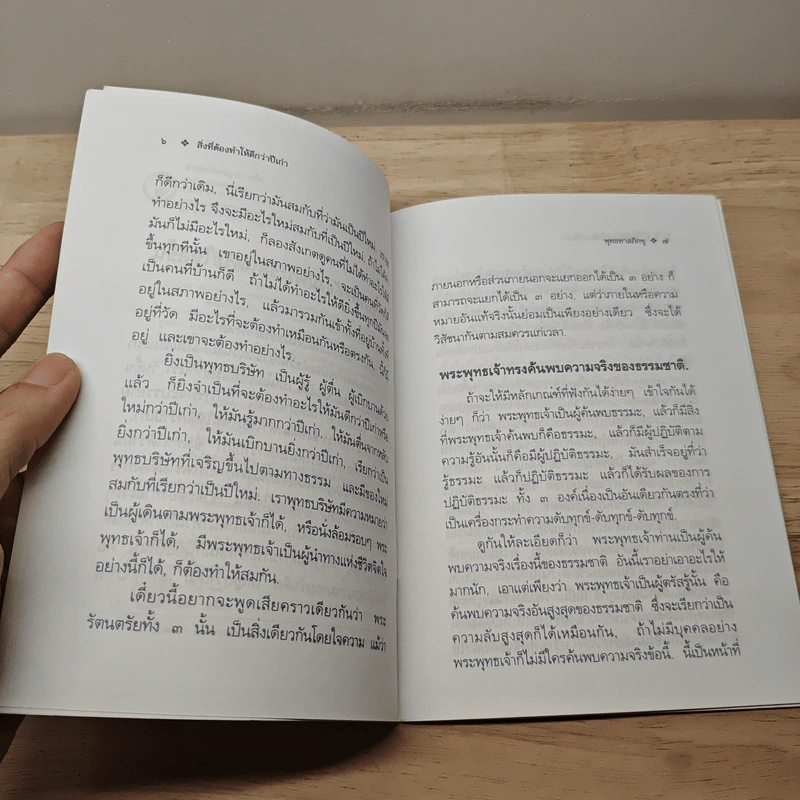 ๖ ❖ สิ่งที่ต้องทำให้ดีกว่าปีเก่า
ก็ดีกว่าเดิม, นี่เรียกว่ามันสมกับที่ว่ามันเป็นปีใหม่,
ทำอย่างไร จึงจะมีอะไรใหม่สมกับที่เป็นปีใหม่. ถ้าไม่ได้ทำ
มันก็ไม่มีอะไรใหม่, ก็ลองสังเกตดูคนที่ไม่ได้ทำอะไรให้ดี
ขึ้นทุกทีนั้น เขาอยู่ในสภาพอย่างไร, จะเป็นคนที่วัดก็ดี
เป็นคนที่บ้านก็ดี ถ้าไม่ได้ทำอะไรให้ดียิ่งขึ้นทุกปี
อยู่ในสภาพอย่างไร, แล้วมารวมกันเข้าทั้งที่อยู่บ้าน
อยู่ที่วัด มีอะไรที่จะต้องทำเหมือนกันหรือตรงกัน,
อยู่ และเขาจะต้องทำอย่างไร.
ยิ่งเป็นพุทธบริษัท เป็นผู้รู้ ผู้ตื่น ผู้เบิกบานด้วย
แล้ว ก็ยิ่งจำเป็นที่จะต้องทำอะไรให้มันดีกว่าปีเก่า
ใหม่กว่าปีเก่า, ให้มันรู้มากกว่าปีเก่า, ให้มันตื่นจากหลับ
ยิ่งกว่าปีเก่า, ให้มันเบิกบานยิ่งกว่าปีเก่า, เรียกว่าเป็น
พุทธบริษัทที่เจริญขึ้นไปตามทางธรรม และมีของใหม่
สมกับที่เรียกว่าเป็นปีใหม่. เราพุทธบริษัทมีความหมายว่า
เป็นผู้เดินตามพระพุทธเจ้าก็ได้, หรือนั่งล้อมรอบๆ พระ
พุทธเจ้าก็ได้, มีพระพุทธเจ้าเป็นผู้นำทางแห่งชีวิตจิตใจ
อย่างนี้ก็ได้, ก็ต้องทำให้สมกัน.
เดี๋ยวนี้อยากจะพูดเสียคราวเดียวกันว่า พระ
รัตนตรัยทั้ง ๓ นั้น เป็นสิ่งเดียวกันโดยใจความ แม้ว่า
พุทธทาสภิกขุ ❖ ๗
ภายนอกหรือส่วนภายนอกจะแยกออกได้เป็น ๓ อย่าง ก็
สามารถจะแยกได้เป็น ๓ อย่าง, แต่ว่าภายในหรือความ
หมายอันแท้จริงนั้นย่อมเป็นเพียงอย่างเดียว ซึ่งจะได้
วิสัชนากันตามสมควรแก่เวลา.
พระพุทธเจ้าทรงค้นพบความจริงของธรรมชาติ.
ถ้าจะให้มีหลักเกณฑ์ที่ฟังกันได้ง่ายๆ เข้าใจกันได้
ง่ายๆ ก็ว่า พระพุทธเจ้าเป็นผู้ค้นพบธรรมะ, แล้วก็มีสิ่ง
ที่พระพุทธเจ้าค้นพบก็คือธรรมะ, แล้วก็มีผู้ปฏิบัติตาม
ความรู้อันนั้นก็คือมีผู้ปฏิบัติธรรมะ, มันสำเร็จอยู่ที่ว่า
รู้ธรรมะ แล้วก็ปฏิบัติธรรมะ แล้วก็ได้รับผลของการ
ปฏิบัติธรรมะ ทั้ง ๓ องค์เนื่องเป็นอันเดียวกันตรงที่ว่า
เป็นเครื่องกระทำความดับทุกข์-ดับทุกข์-ดับทุกข์.
ดูกันให้ละเอียดก็ว่า พระพุทธเจ้าท่านเป็นผู้ค้น
พบความจริงเรื่องนี้ของธรรมชาติ อันนี้เราอย่าเอาอะไรให้
มากนัก, เอาแต่เพียงว่า พระพุทธเจ้าเป็นผู้ตรัสรู้นั้น คือ
ค้นพบความจริงอันสูงสุดของธรรมชาติ ซึ่งจะเรียกว่าเป็น
ความลับสูงสุดก็ได้เหมือนกัน, ถ้าไม่มีบุคคลอย่าง
พระพุทธเจ้าก็ไม่มีใครค้นพบความจริงข้อนี้. นี้เป็นหน้าที่